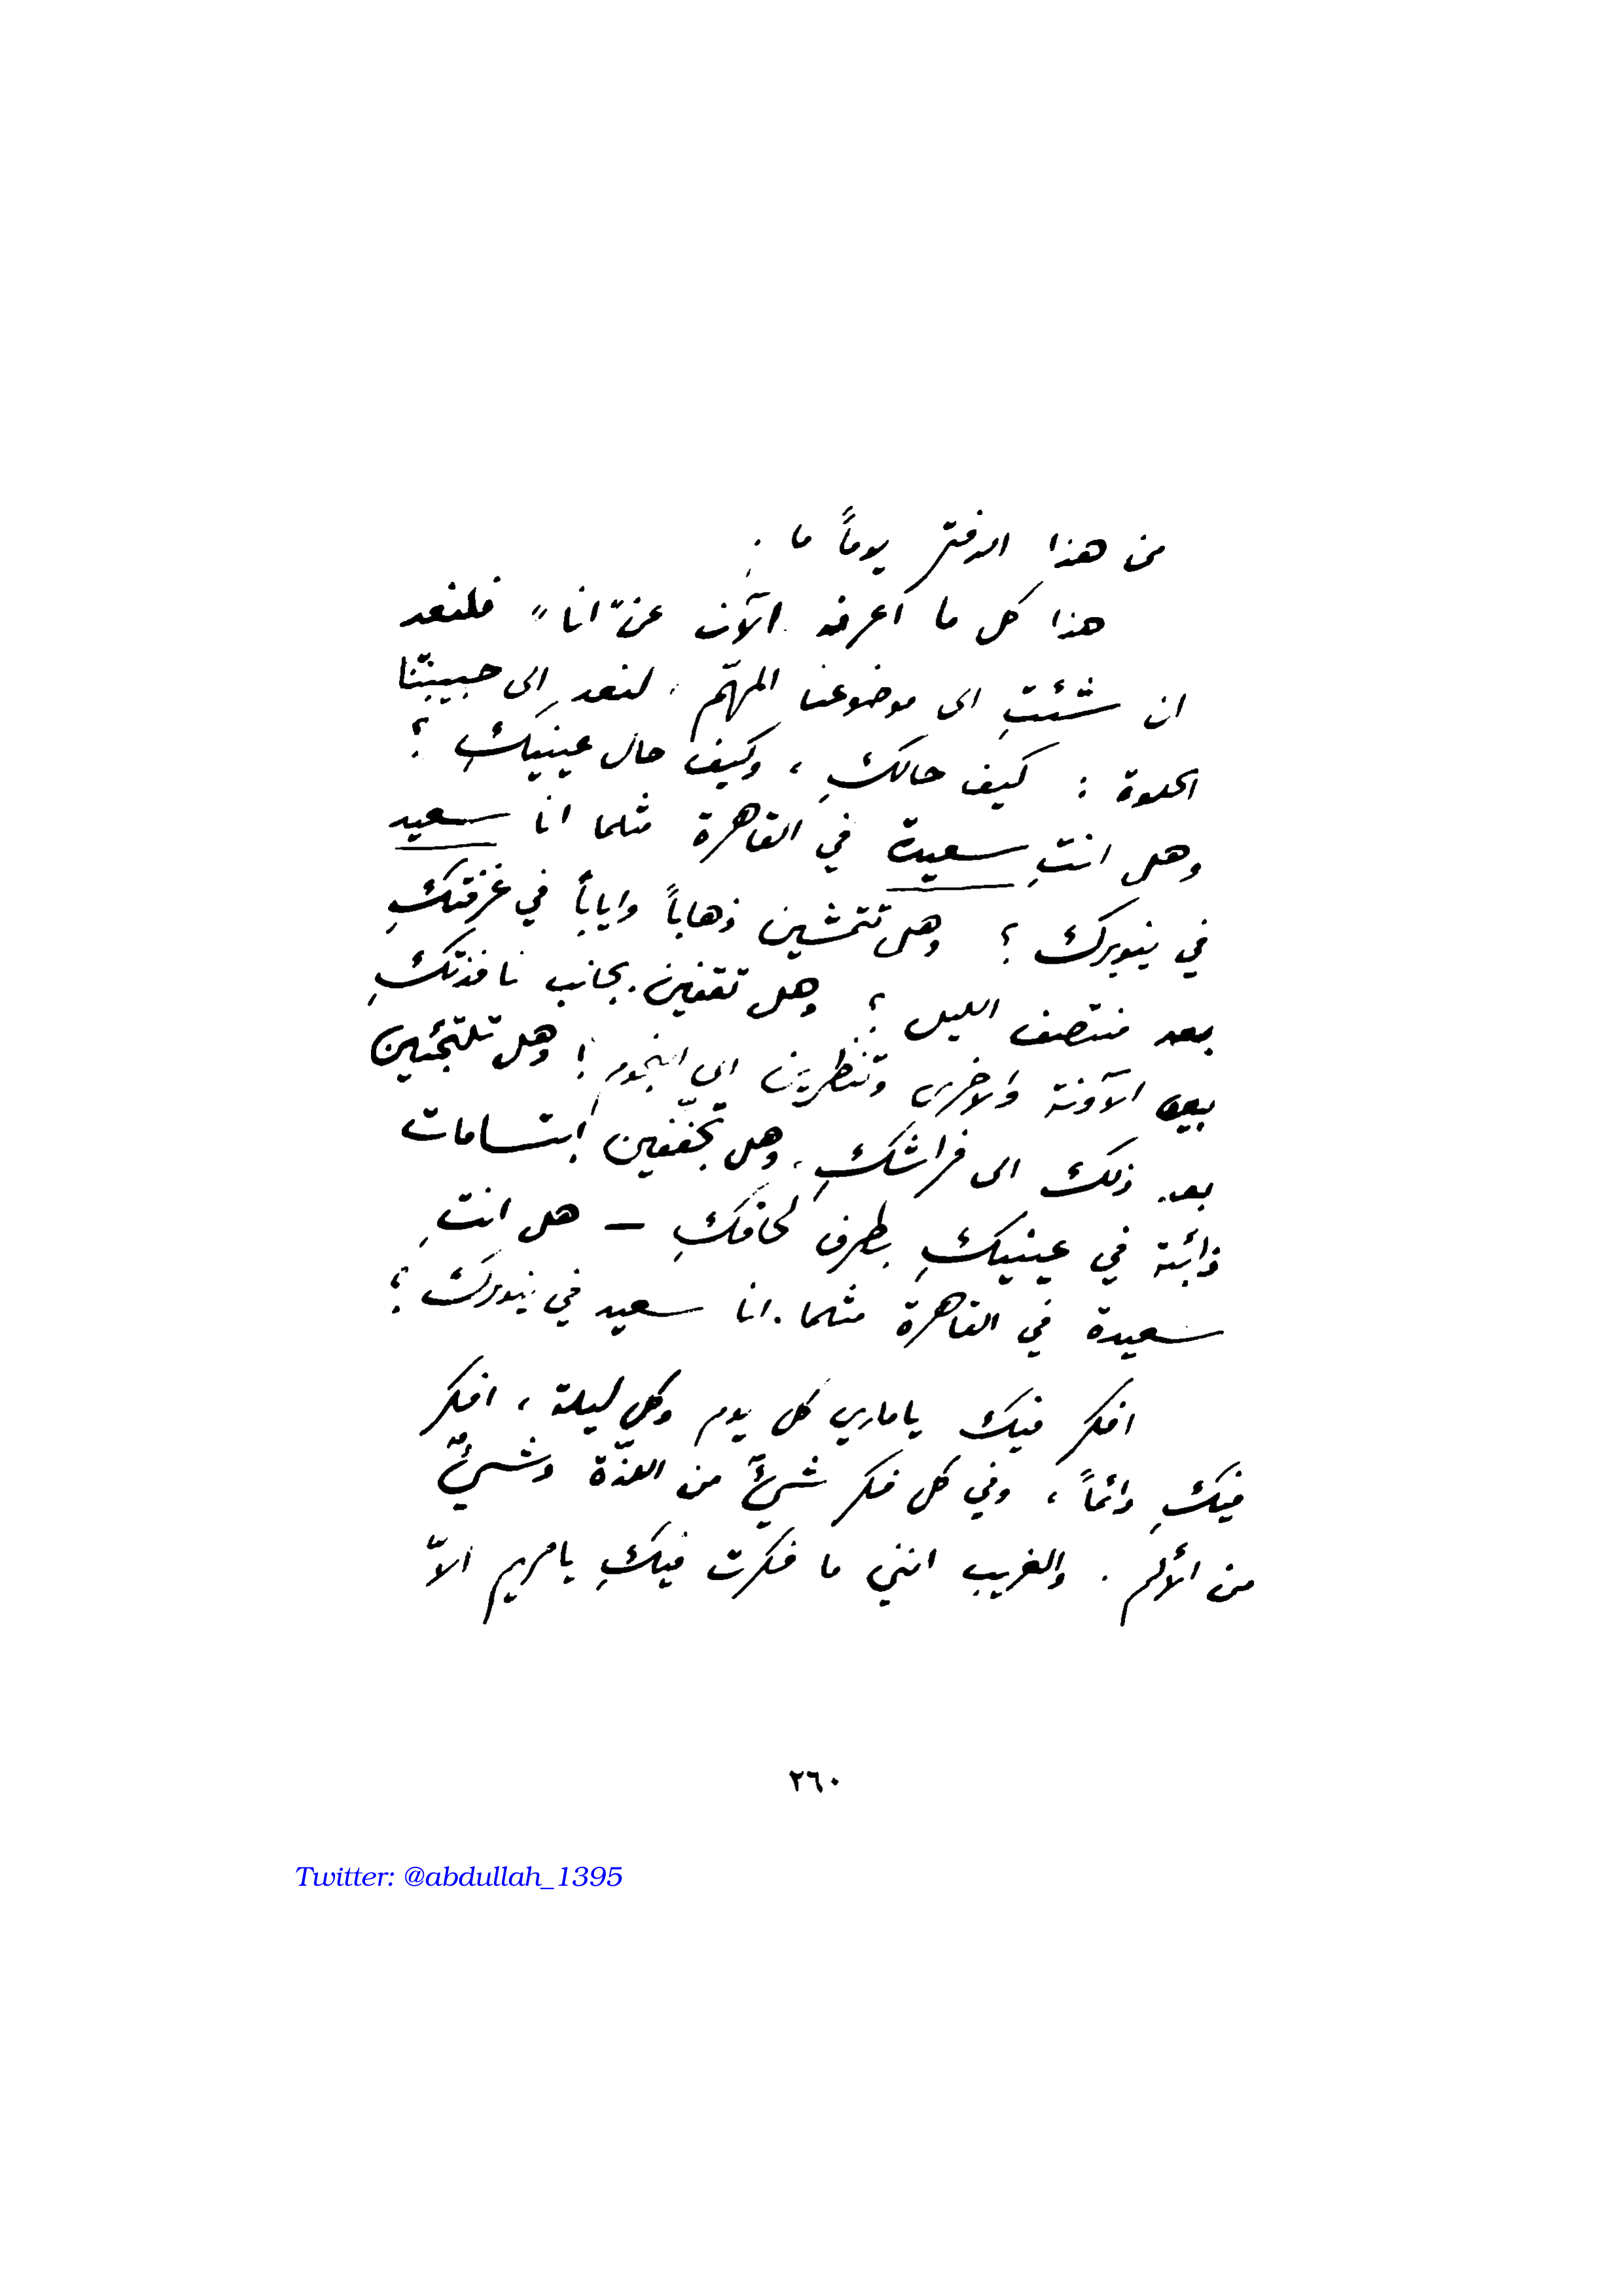 من هذا الدفتر يوماً ما .
هذا كل ما أعرفه الآن عن "انا" فلنعد
ان شئتِ الى موضوعنا المهمّ ، لنعد الى حبيبتنا
الحلوة : كيف حالكِ ، وكيف حال عينيكِ ؟
وهل انتِ سعيدة في القاهرة مثلما انا سعيد
في نيويرك ؟ وهل تتمشين ذهاباً واياباً في غرفتكِ
بعد منتصف الليل ؟ وهل تقفين بجانب نافذتكِ
بين الآونة والاخرى وتنظرين الى النجوم ؟ وهل تلتجئين
بعد ذلك الى فراشكِ ، وهل تجفّفين ابتسامات
ذائبة في عينيكِ بطرف لحافكِ – هل انتِ
سعيدة في القاهرة مثلما انا سعيد في نيويرك ؟
افكر فيك ياماري كل يوم وكل ليلة ، افكر
فيكِ دائماً ، وفي كل فكر شيءٌ من اللذّة وشيءٌ
من الألم . والغريب انني ما فكرت فيكِ يامريم الاّ
٢٦٠
Twitter: @abdullah_1395